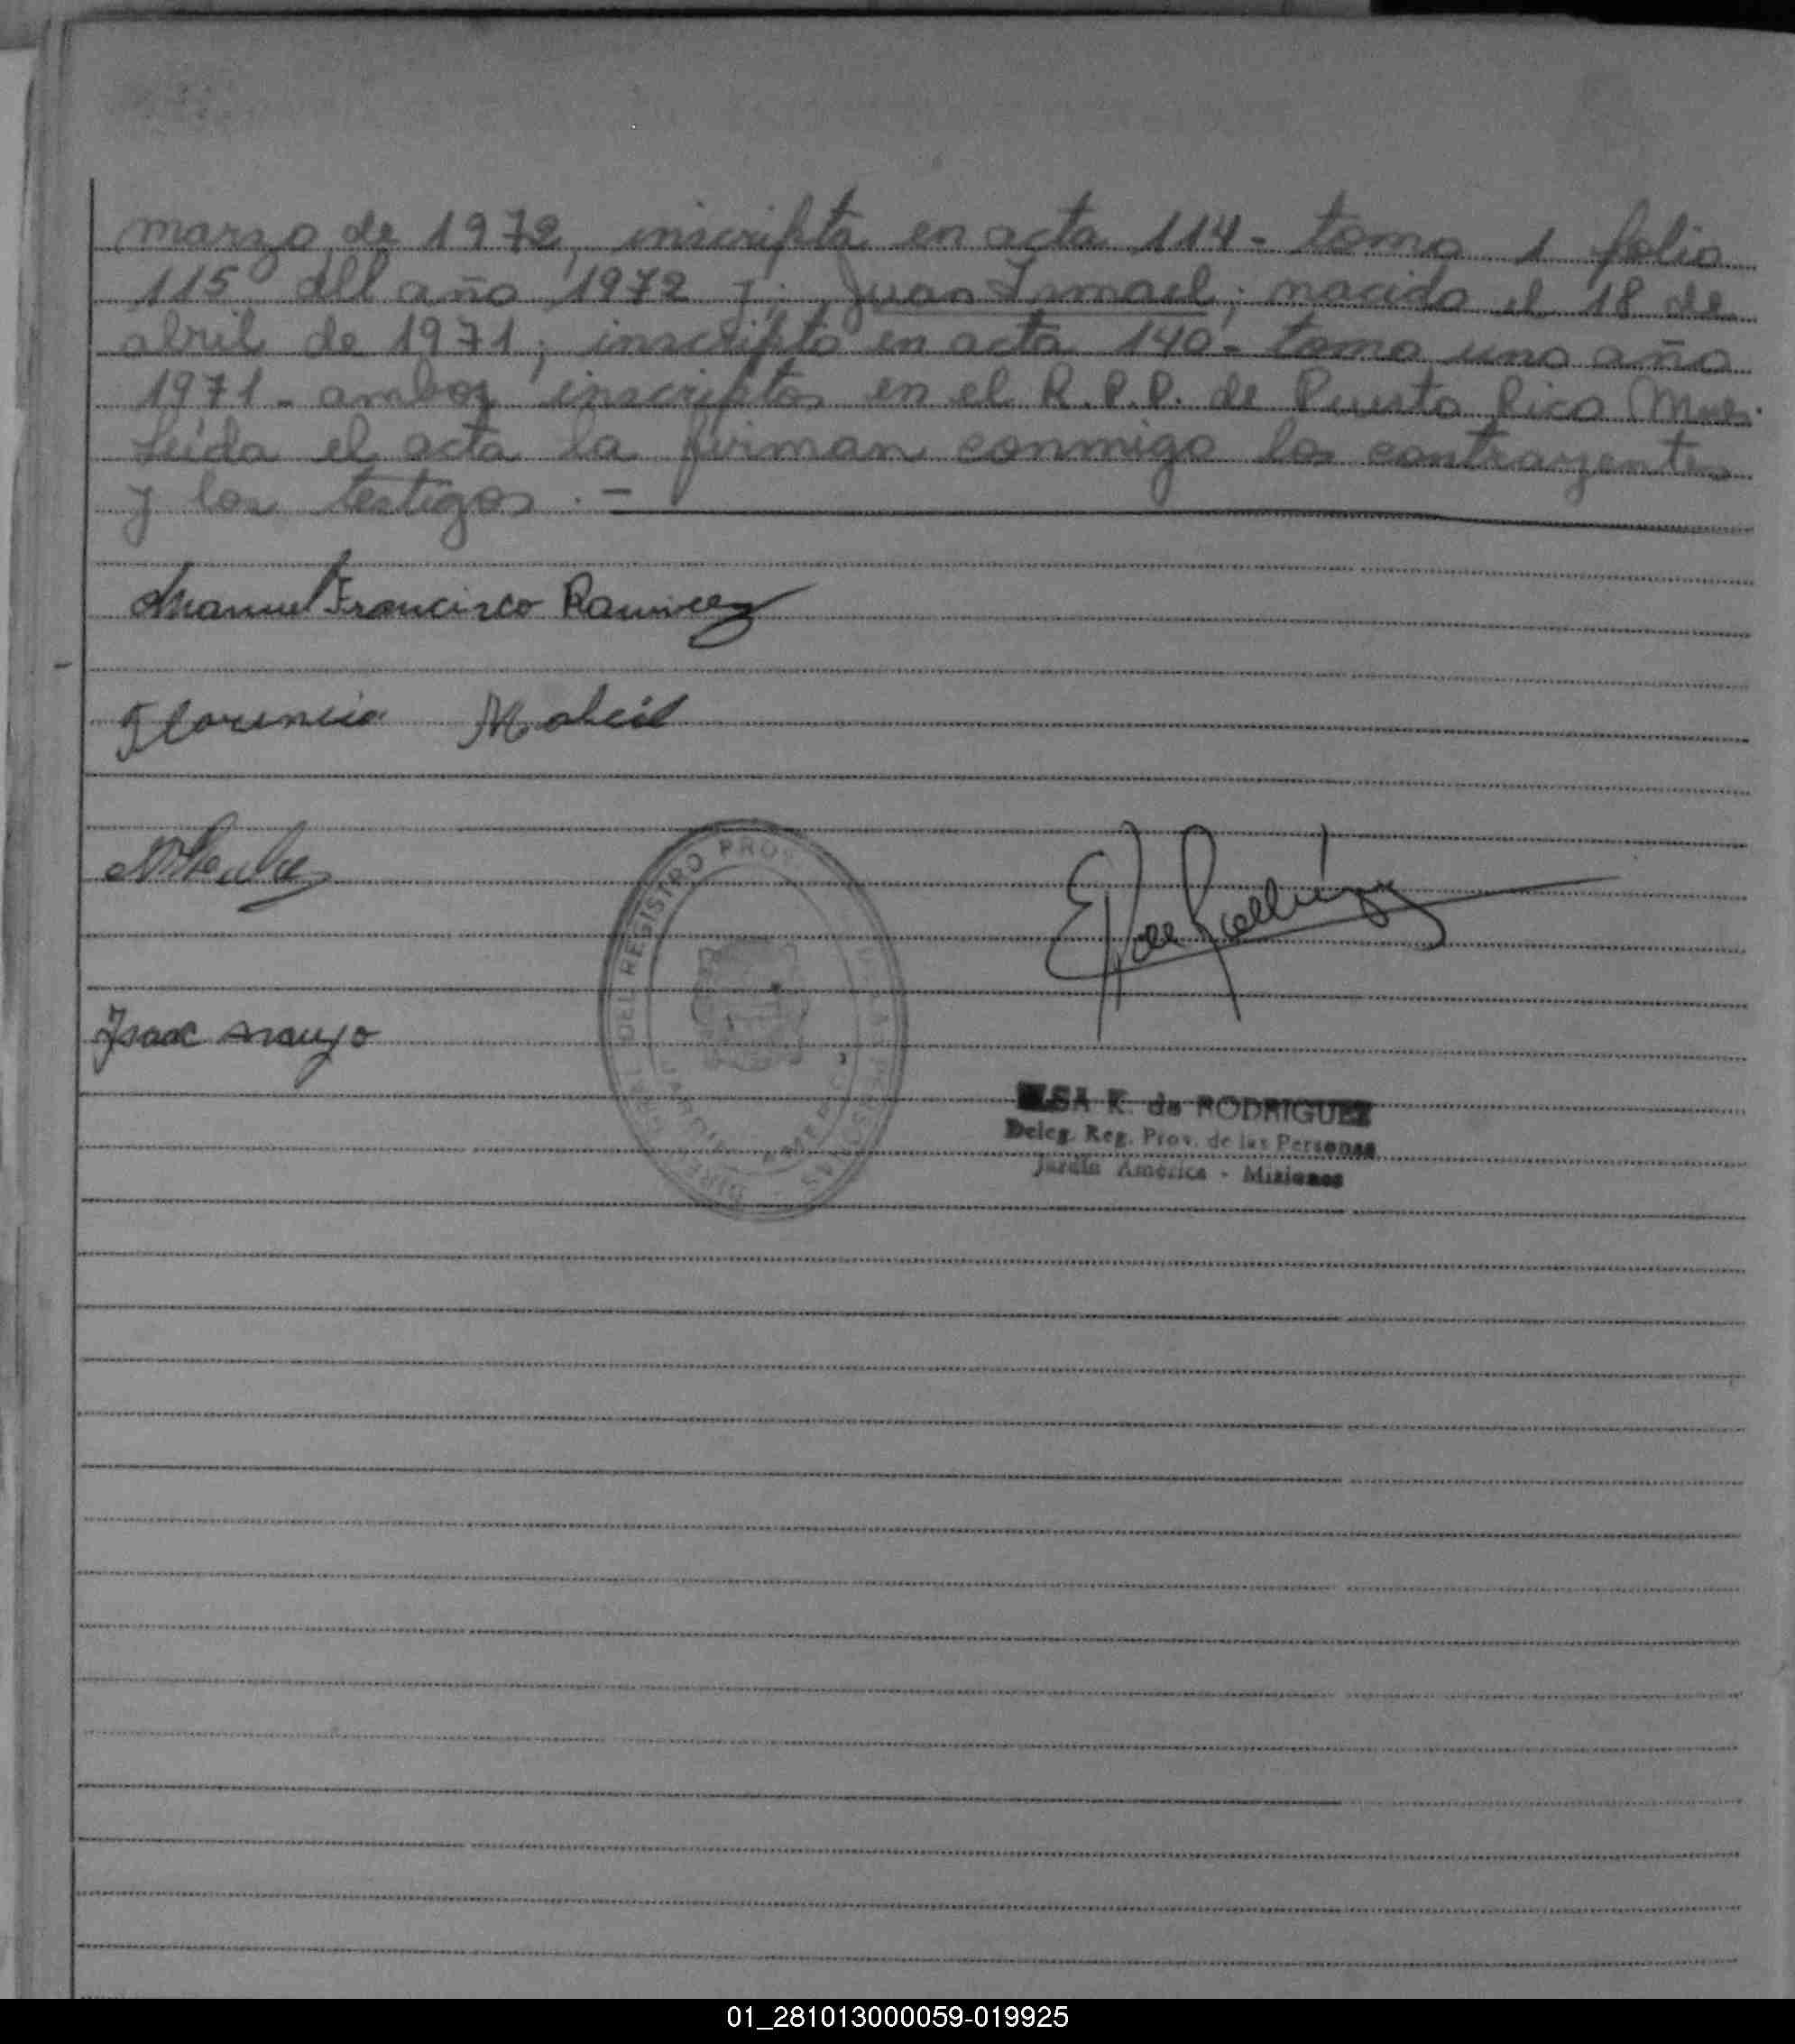 marzo de 1972, inscripta en acta 114 - tomo 1 folio
115 del año 1972 y: Juan Ismael; nacido el 18 de
abril de 1971; inscripto en acta 140 - tomo uno año
1971 - ambos inscriptos en el R.P.P. de Puerto Rico Mnes.
Leida el acta la firman conmigo los contrayentes
y los testigos. -
Manuel Francisco Ramirez
Florencia
Isaac Araujo
DEL REGISTRO PROV
ELSA K. de RODRIGUEZ
Deleg. Reg. Prov. de las Personas
Jardín América - Misiones
01_281013000059-019925